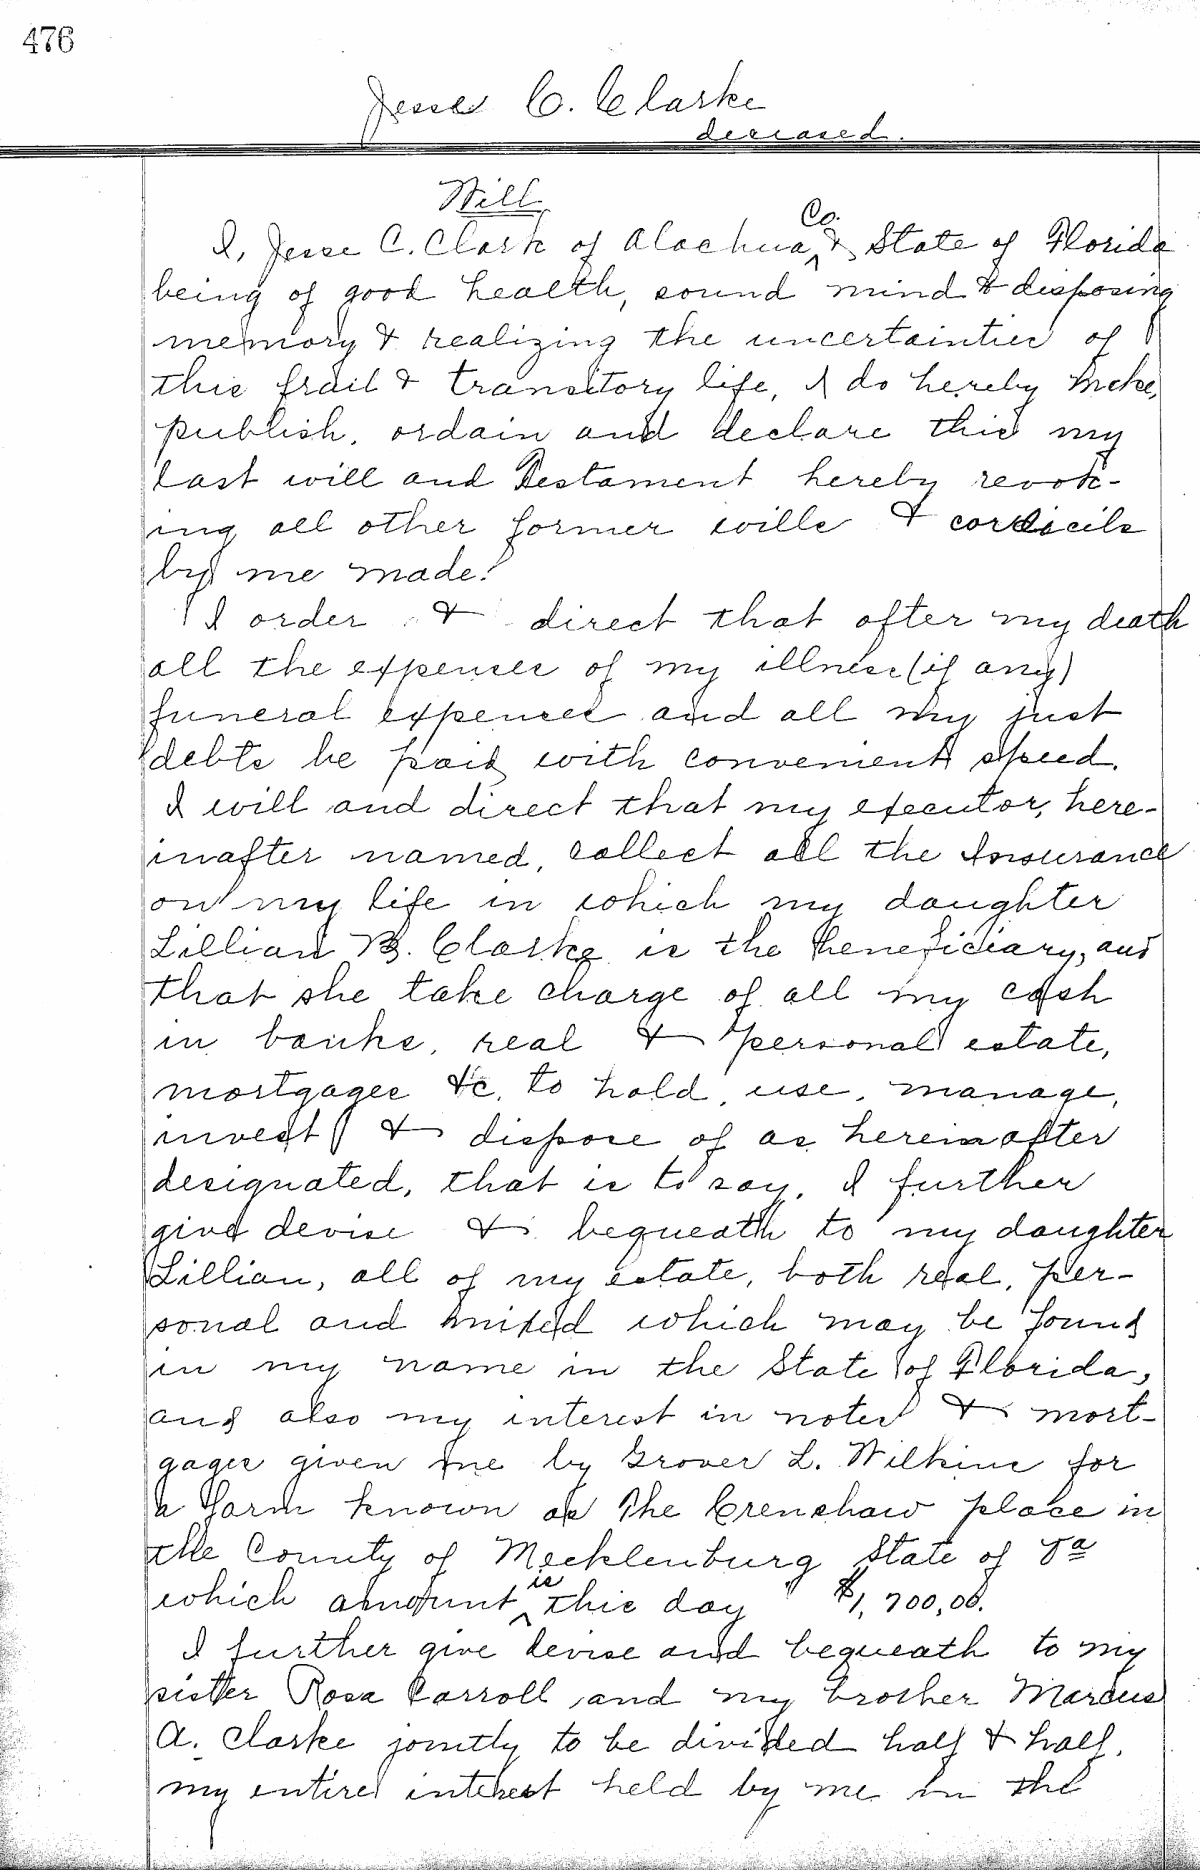 476
Jesse C. Clarke
deceased.
Will
I, Jesse C. Clark of Alachua Co. & State of Florida
being of good health, sound mind & disposing
memory & realizing the uncertainties of
this frail & transitory life, I do hereby make,
publish, ordain and declare this my
last will and Testament hereby revok-
ing all other former wills & cordicils
by me made.
I order & direct that after my death
all the expenses of my illness (if any)
funeral expenses and all my just
debts be paid with convenient speed.
I will and direct that my executor, here-
inafter named, collect all the Insurance
on my life in which my daughter
Lillian B. Clarke is the beneficiary, and
that she take charge of all my cash
in banks, real & personal estate,
mortgages &c. to hold, use, manage,
invest & dispose of as hereinafter
designated, that is to say, I further
give devise & bequeath to my daughter
Lillian, all of my estate, both real, per-
sonal and mixed which may be found
in my name in the State of Florida,
and also my interest in notes & mort-
gages given me by Grover L. Wilkins for
a farm known as The Crenshaw place in
the County of Mecklenburg State of Va
which amount is this day $1,700,00.
I further give devise and bequeath to my
sister Rosa Carroll and my brother Marcus
A. Clarke jointly to be divided half & half,
my entire interest held by me in the